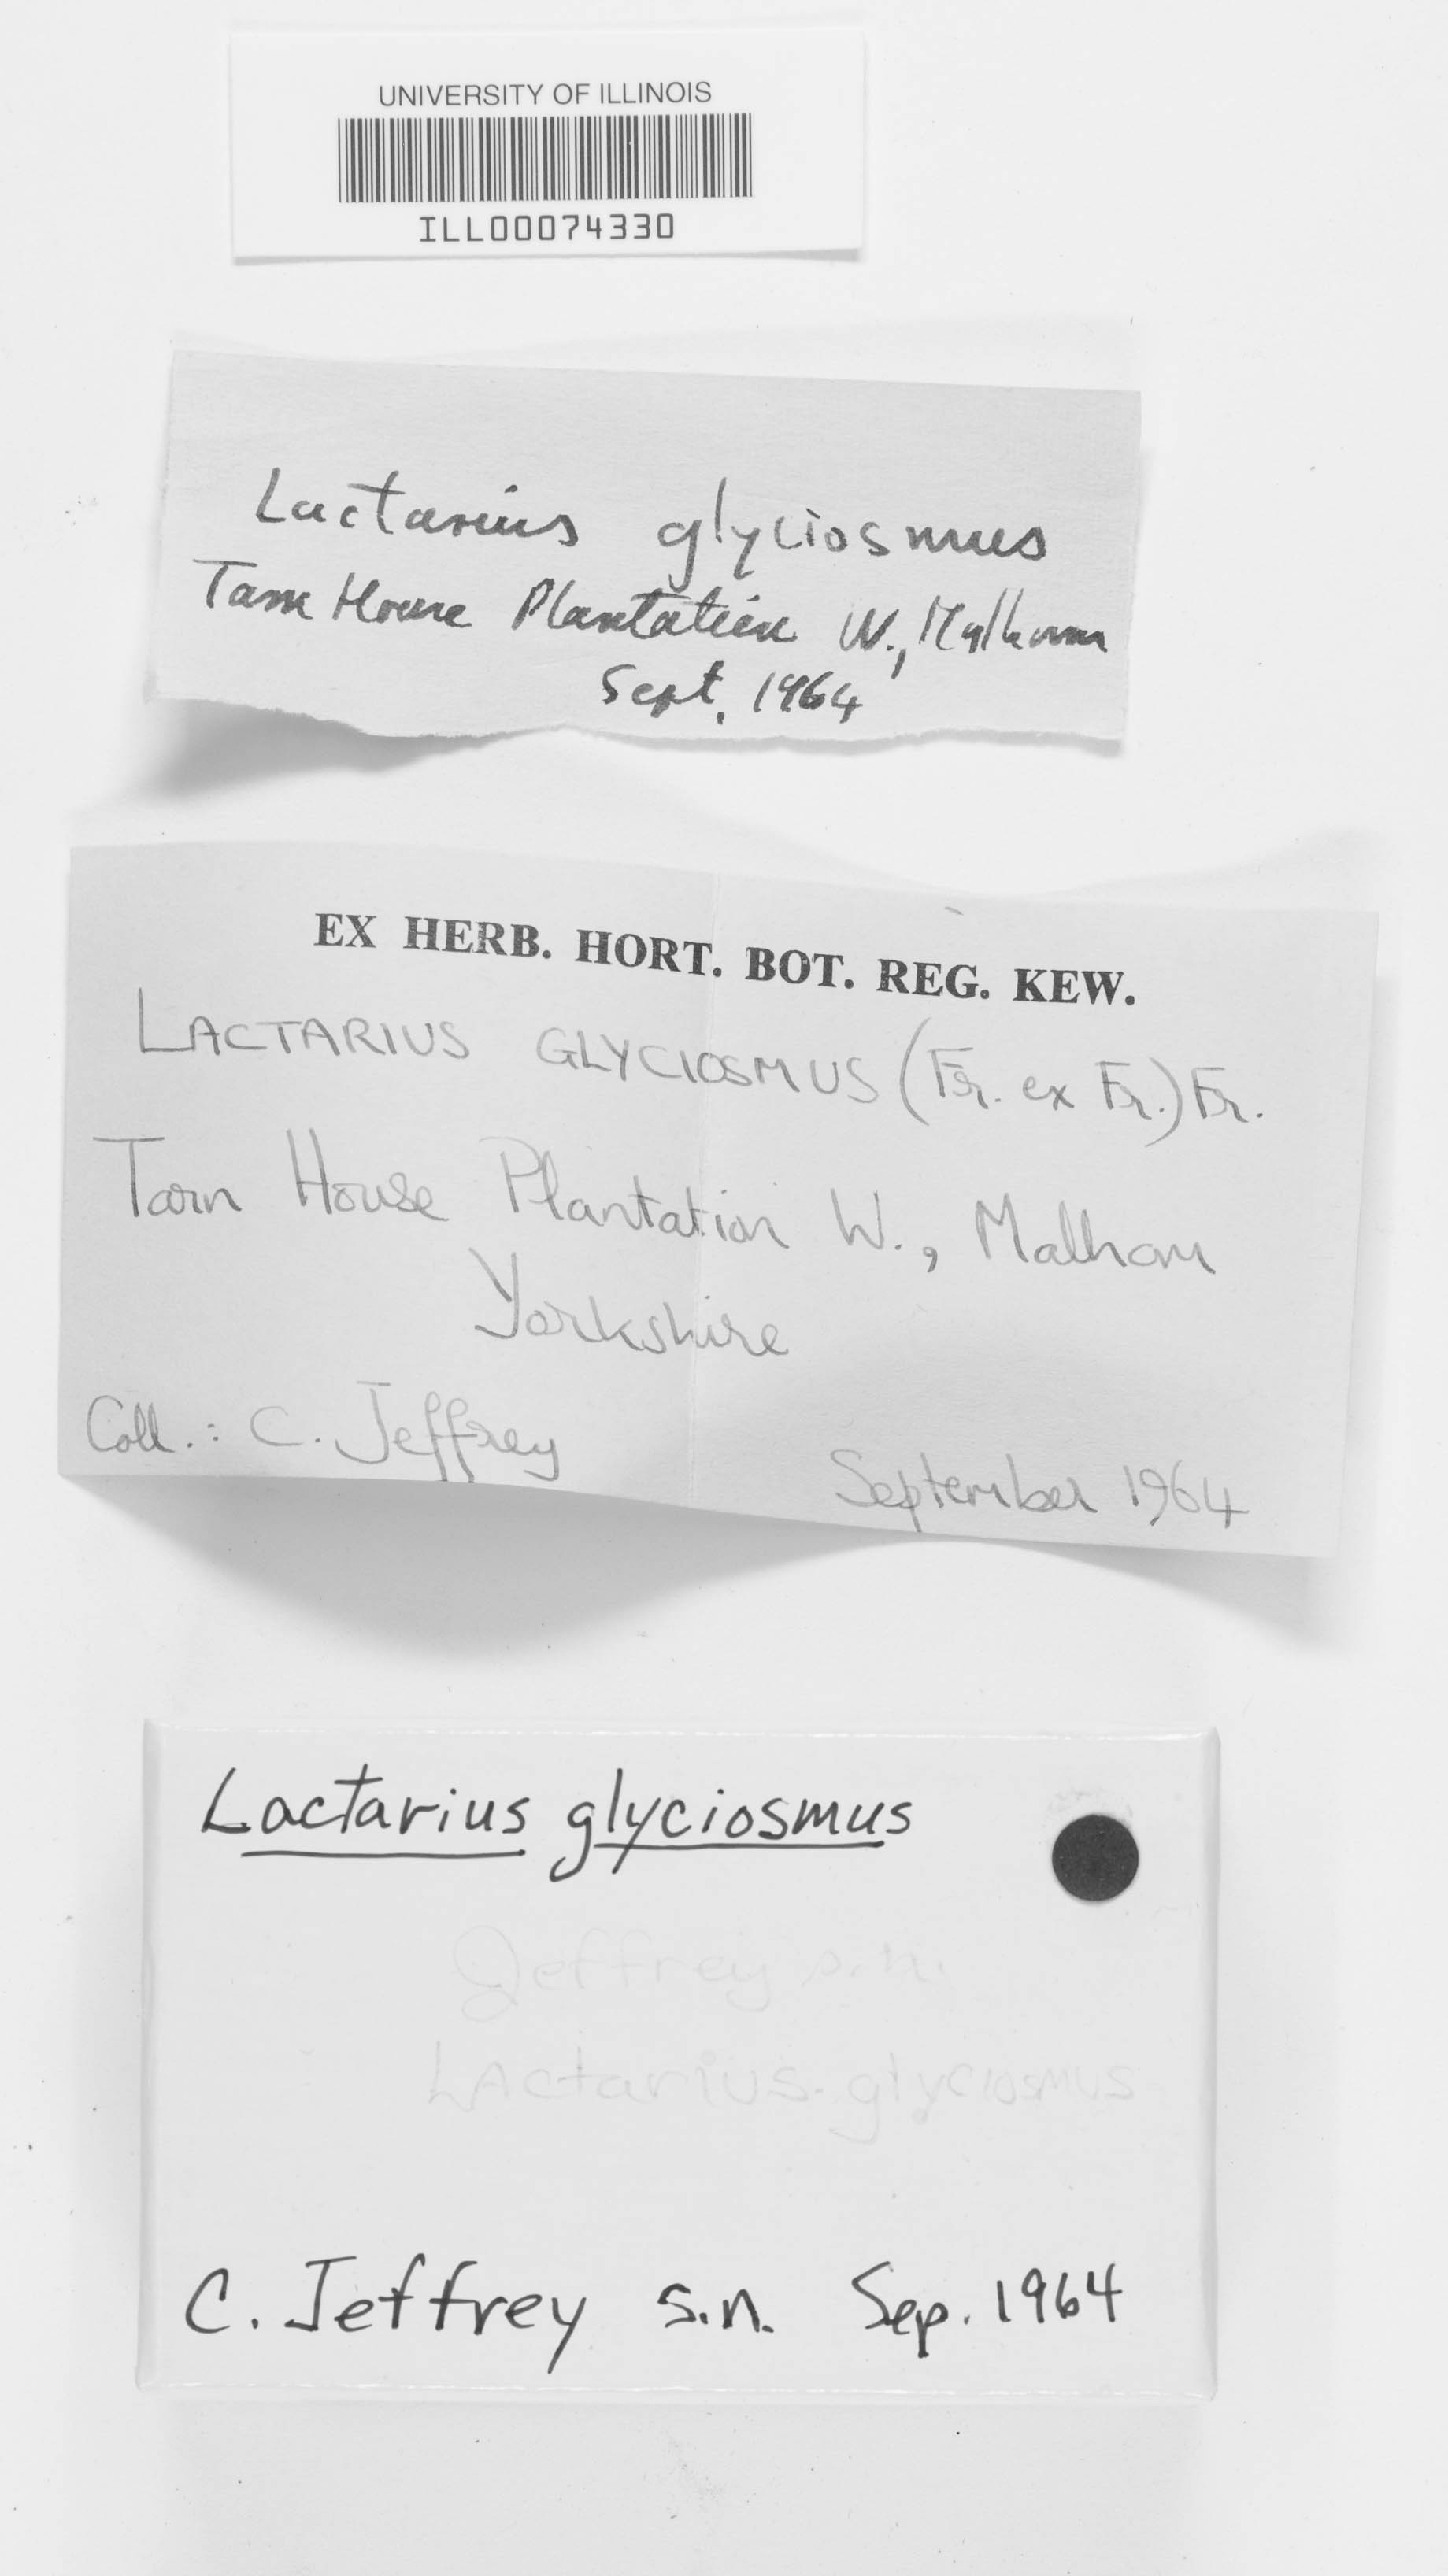 UNIVERSITY OF ILLINOIS
ILL00074330
Lactarius glyciosmus
Tarn House Plantation W., Malham
Sept. 1964
EX HERB. HORT. BOT. REG. KEW.
LACTARIUS GLYCIOSMUS (Fr. ex Fr.) Fr.
Tarn House Plantation W., Malham
Yorkshire
Coll.: C. Jeffrey
September 1964
Lactarius glyciosmus
Jeffrey s.n.
LActarius glyciosmus
C. Jeffrey s.n. Sep. 1964